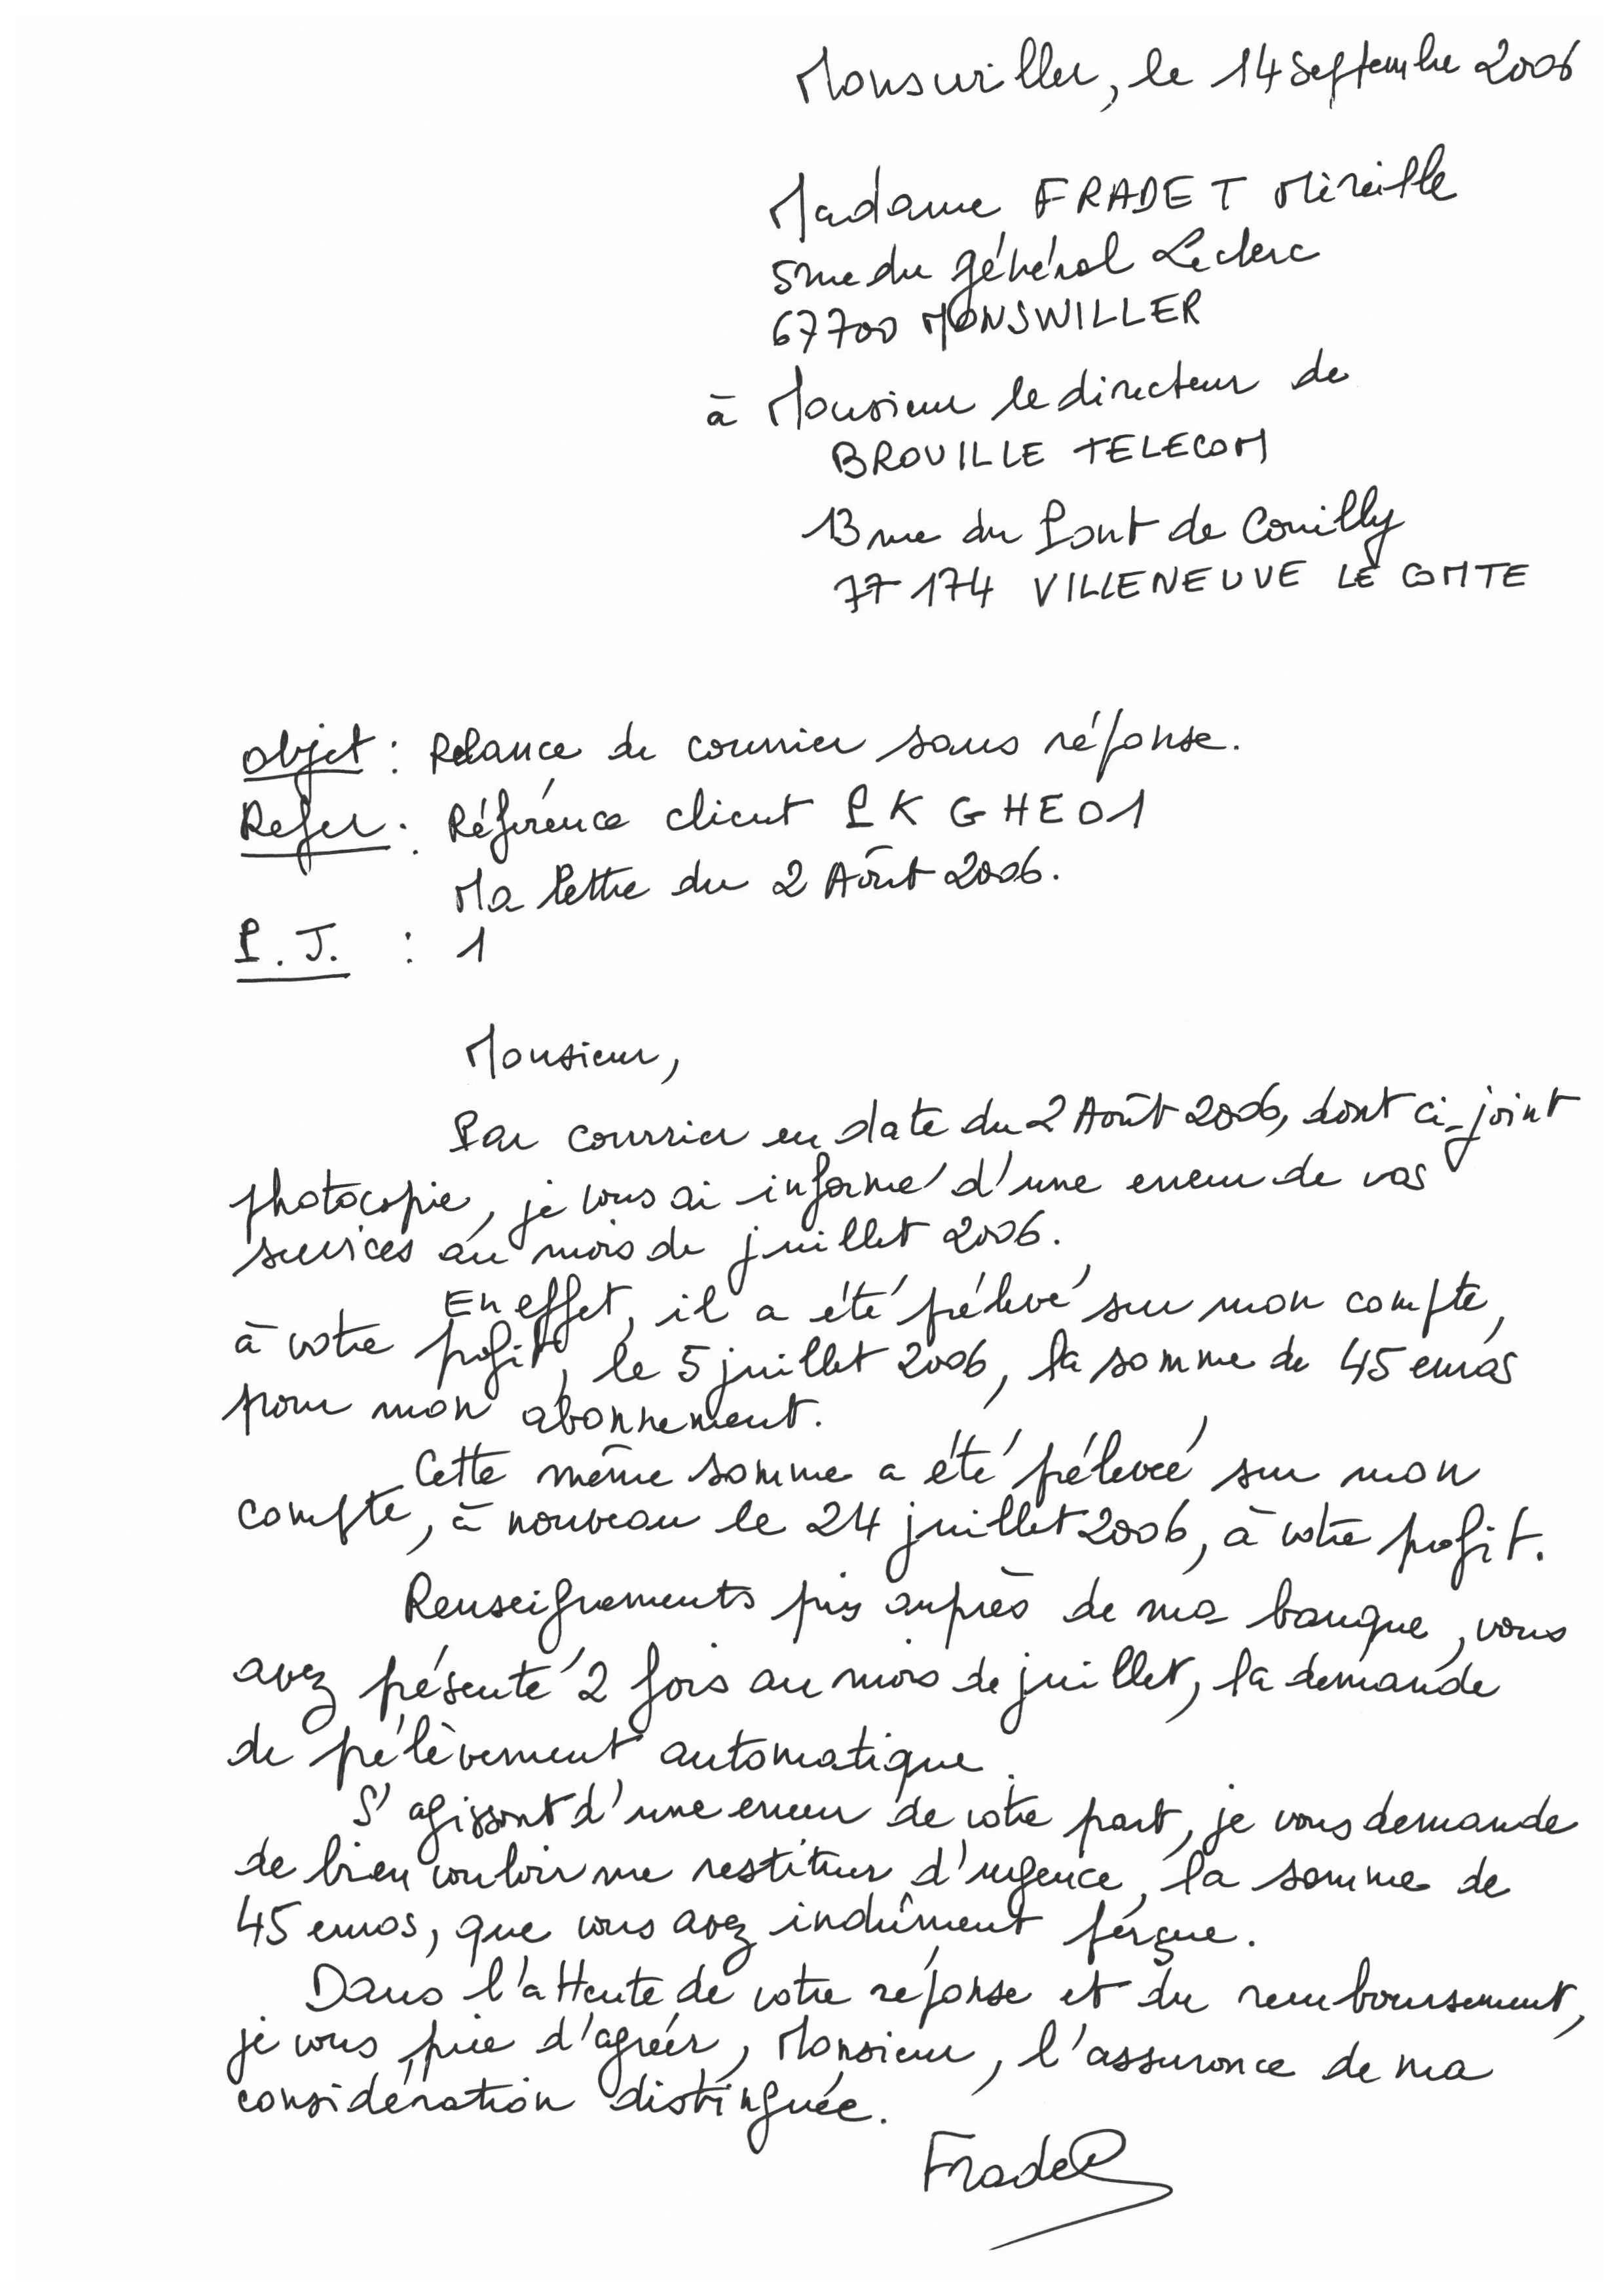 Monswiller, le 14 Septembre 2006
Madame FRADET Mireille
5 rue du général Leclerc
67700 MONSWILLER
à Monsieur le directeur de
BROUILLE TELECOM
13 rue du Pont de Couilly
77174 VILLENEUVE LE COMTE
Objet : Relance de courrier sans réponse.
Refer : Référence client PKGHE01
Ma lettre du 2 Août 2006.
P.J. : 1
Monsieur,
Par courrier en date du 2 Août 2006, dont ci-joint
photocopie, je vous ai informé d'une erreur de vos
services au mois de juillet 2006.
En effet, il a été prélevé sur mon compte,
à votre profit, le 5 juillet 2006, la somme de 45 euros
pour mon abonnement.
Cette même somme a été prélevée sur mon
compte, à nouveau le 24 juillet 2006, à votre profit.
Renseignements pris auprès de ma banque, vous
avez présenté 2 fois au mois de juillet, la demande
de prélèvement automatique.
S'agissant d'une erreur de votre part, je vous demande
de bien vouloir me restituer d'urgence, la somme de
45 euros, que vous avez indûment perçue.
Dans l'attente de votre réponse et du remboursement,
je vous prie d'agréer, Monsieur, l'assurance de ma
considération distinguée.
Fradet